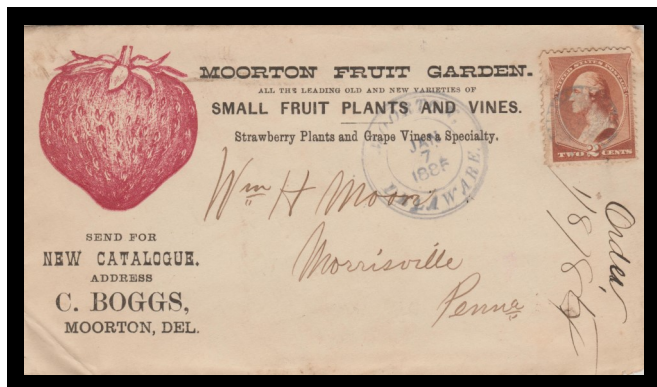 MOORTON FRUIT GARDEN.
ALL THE LEADING OLD AND NEW VARIETIES OF
SMALL FRUIT PLANTS AND VINES.
Strawberry Plants and Grape Vines a Specialty.
MOORTON,
JAN
7
DELAWARE.
UNITED STATES POSTAGE
TWO 2 CENTS
Wm H Moon
Morrisville
Penna
Order
1/8/85
SEND FOR
NEW CATALOGUE.
ADDRESS
C. BOGGS,
MOORTON, DEL.